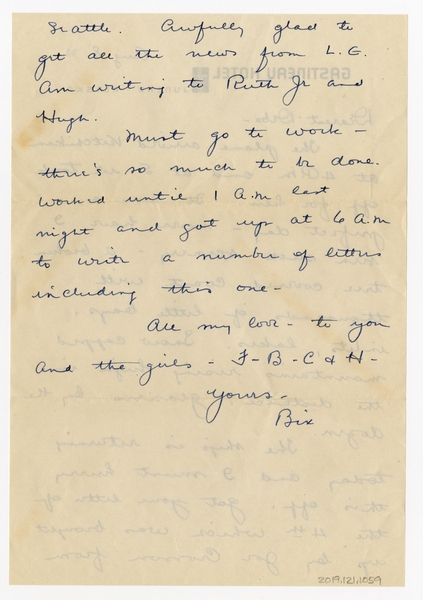 Seattle. Awfully glad to
get all the news from L.G.
Am writing to Ruth Jr and
Hugh.
Must go to work -
there's so much to be done.
Worked until 1 A.M last
night and got up at 6 A.M
to write a number of letters
including this one -
All my love - to you
and the girls - F - B - C & H -
Yours -
Bix
2019.121.1059